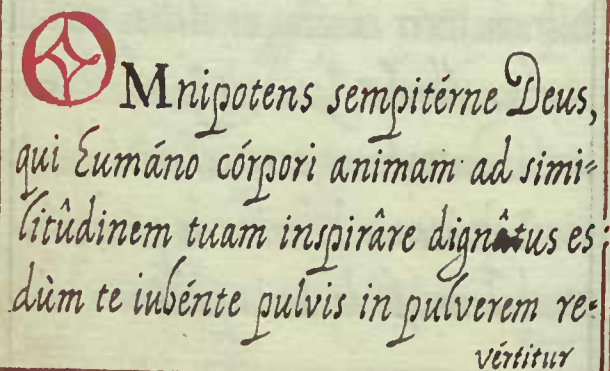 OMnipotens sempitérne Deus,
qui humáno córpori animam ad simi-
litûdinem tuam inspirâre dignâtus es
dùm te iubénte pulvis in pulverem re-
vértitur